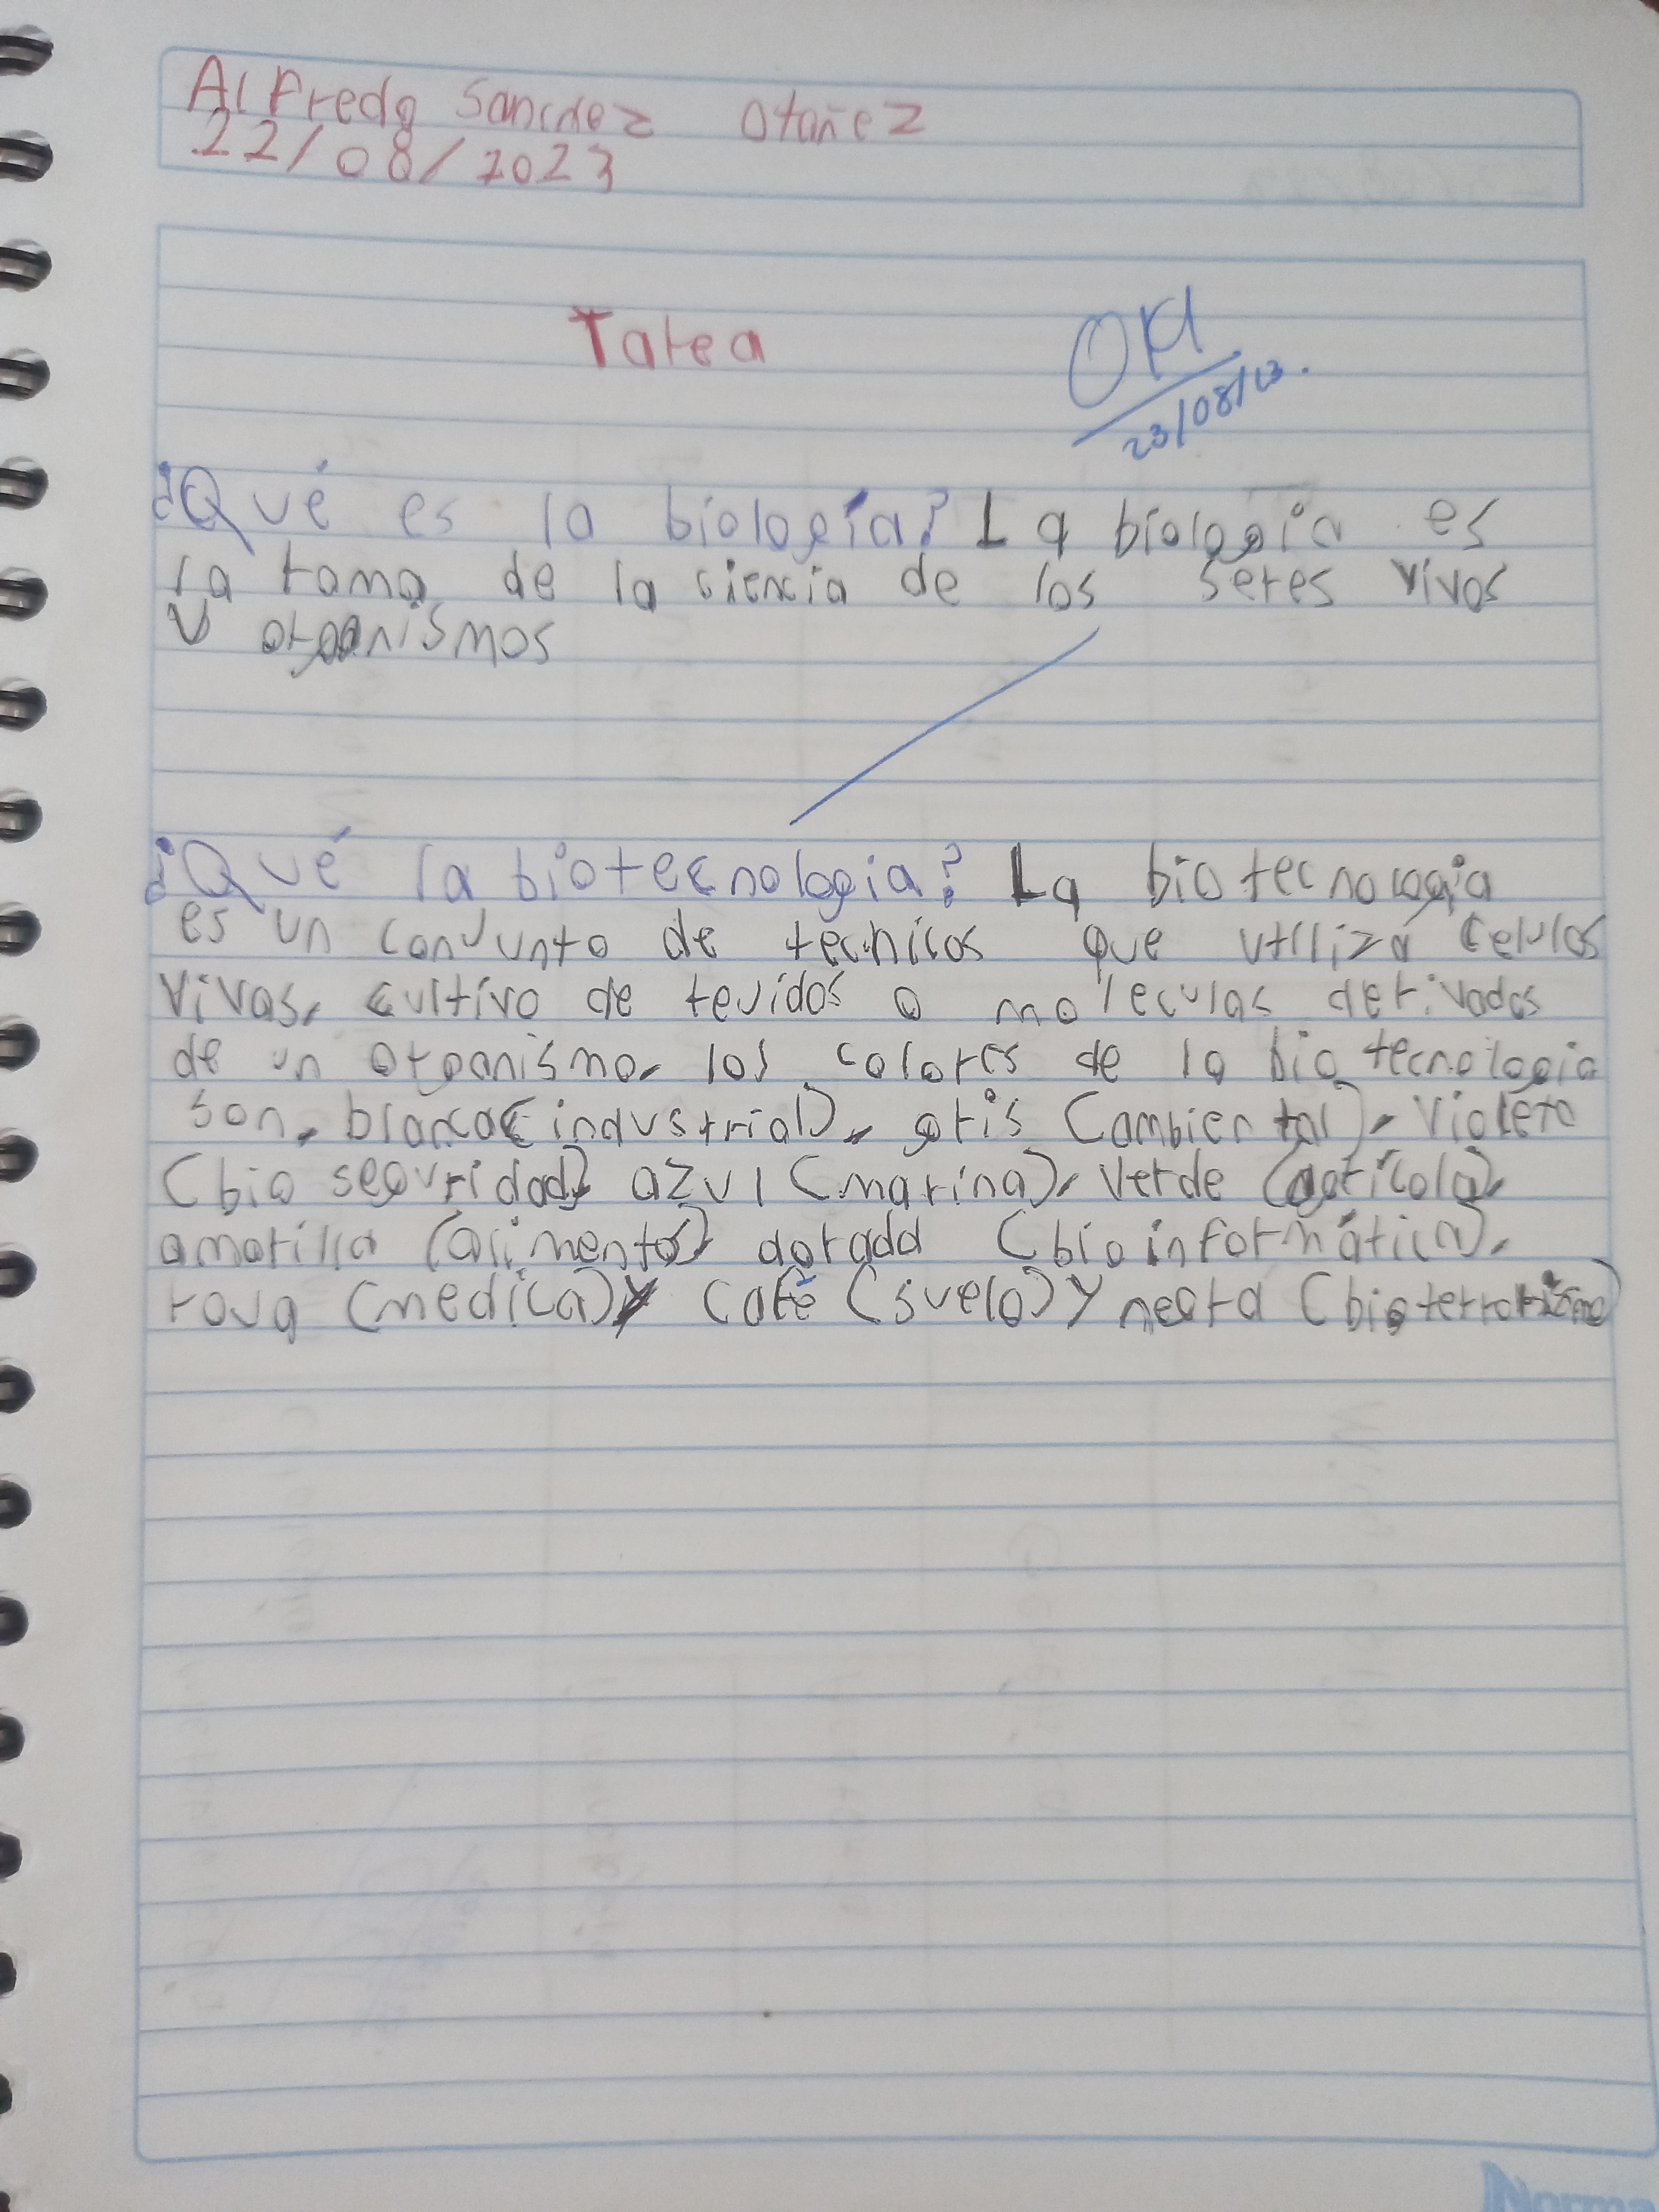 Alfredo Sanchez Otañez
22/08/2023
Tarea
OK
23/08/23.
¿Qué es la biología? La biologia es
la rama de la ciencia de los seres vivos
y organismos
¿Qué la biotecnologia? La biotecnologia
es un conjunto de tecnicas que utiliza celulas
vivas, cultivo de tejidos o moleculas derivadas
de un organismo, los colores de la biotecnologia
son, blanca (industrial), gris (ambiental), violeta
(bio seguridad) azul (marina), verde (agrícola),
amarilla (alimentos) dorada (bioinformática),
roja (medica) y café (suelo) y negra (bioterrorismo)
Norma